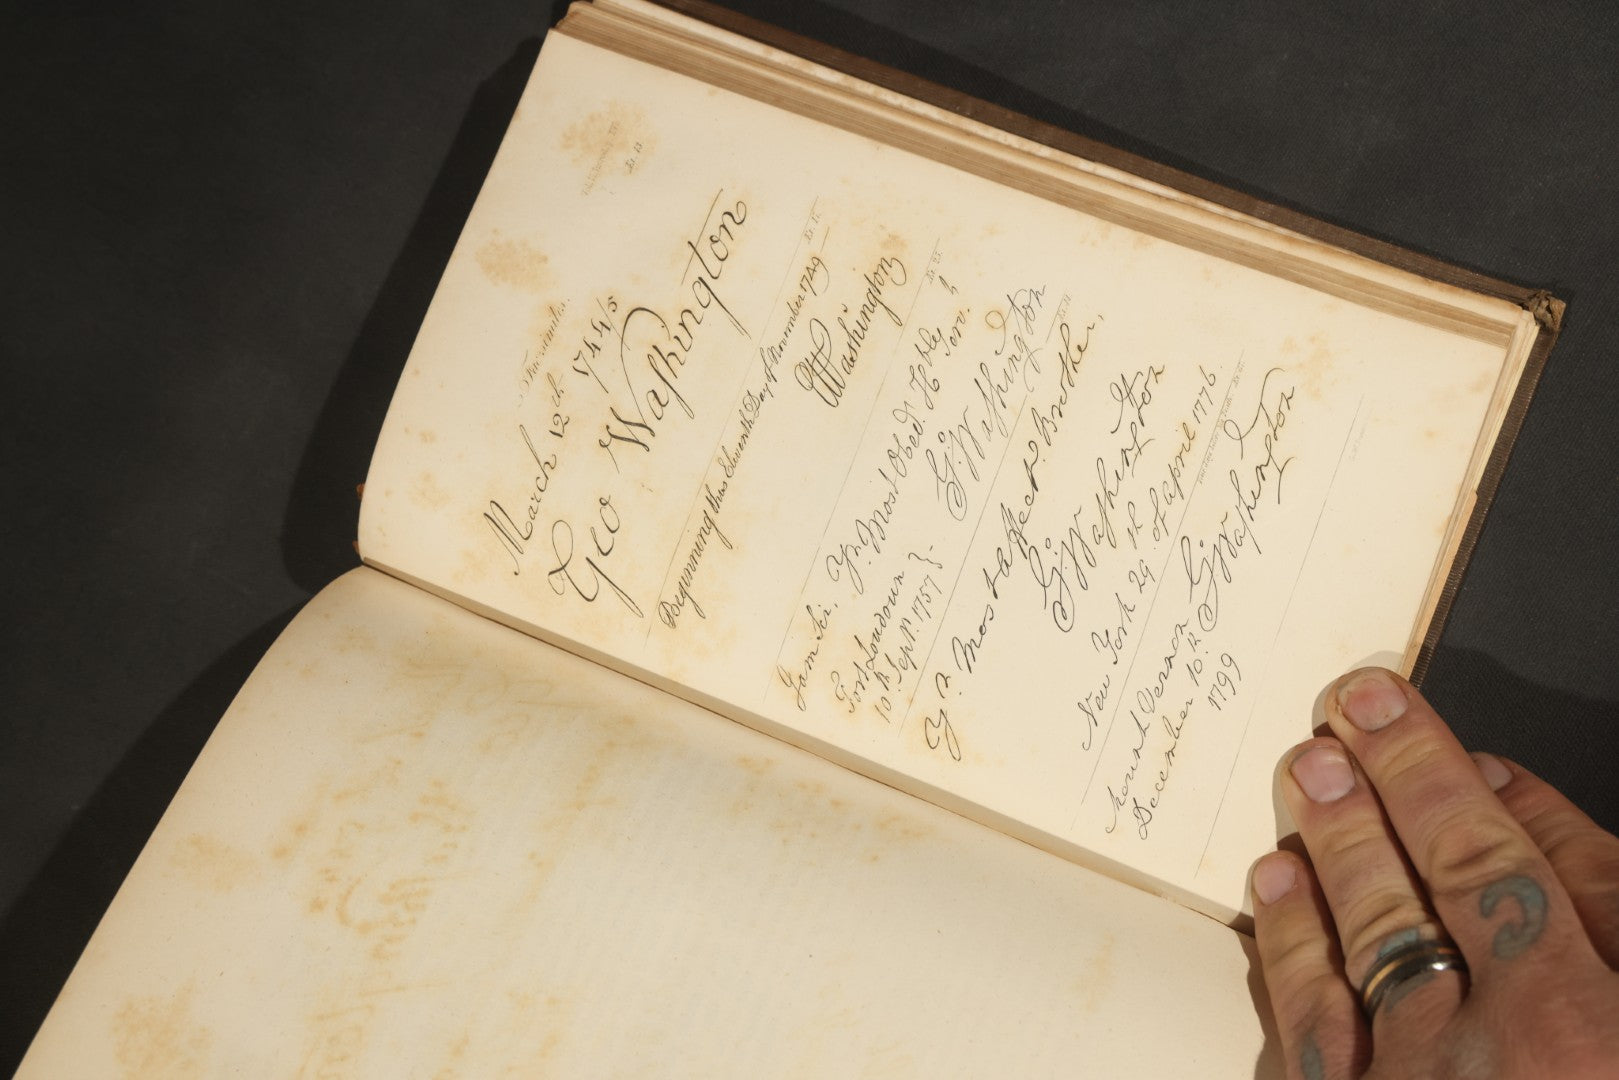 Æt. 13
Facsimiles.
March 12th 1744/5
Geo Washington
Æt. 17.
Beginning this Eleventh Day of November 1749
Washington
Æt. 25.
I am Sir, Yr. Most Obedt. Hble Serv.
Fort Loudoun
10th Sept. 1757
G:Washington
Yr. Most Affect. Brother,
G:Washington
New York 29th. of april 1776.
G:Washington
Mount Vernon
December 10.th
1799